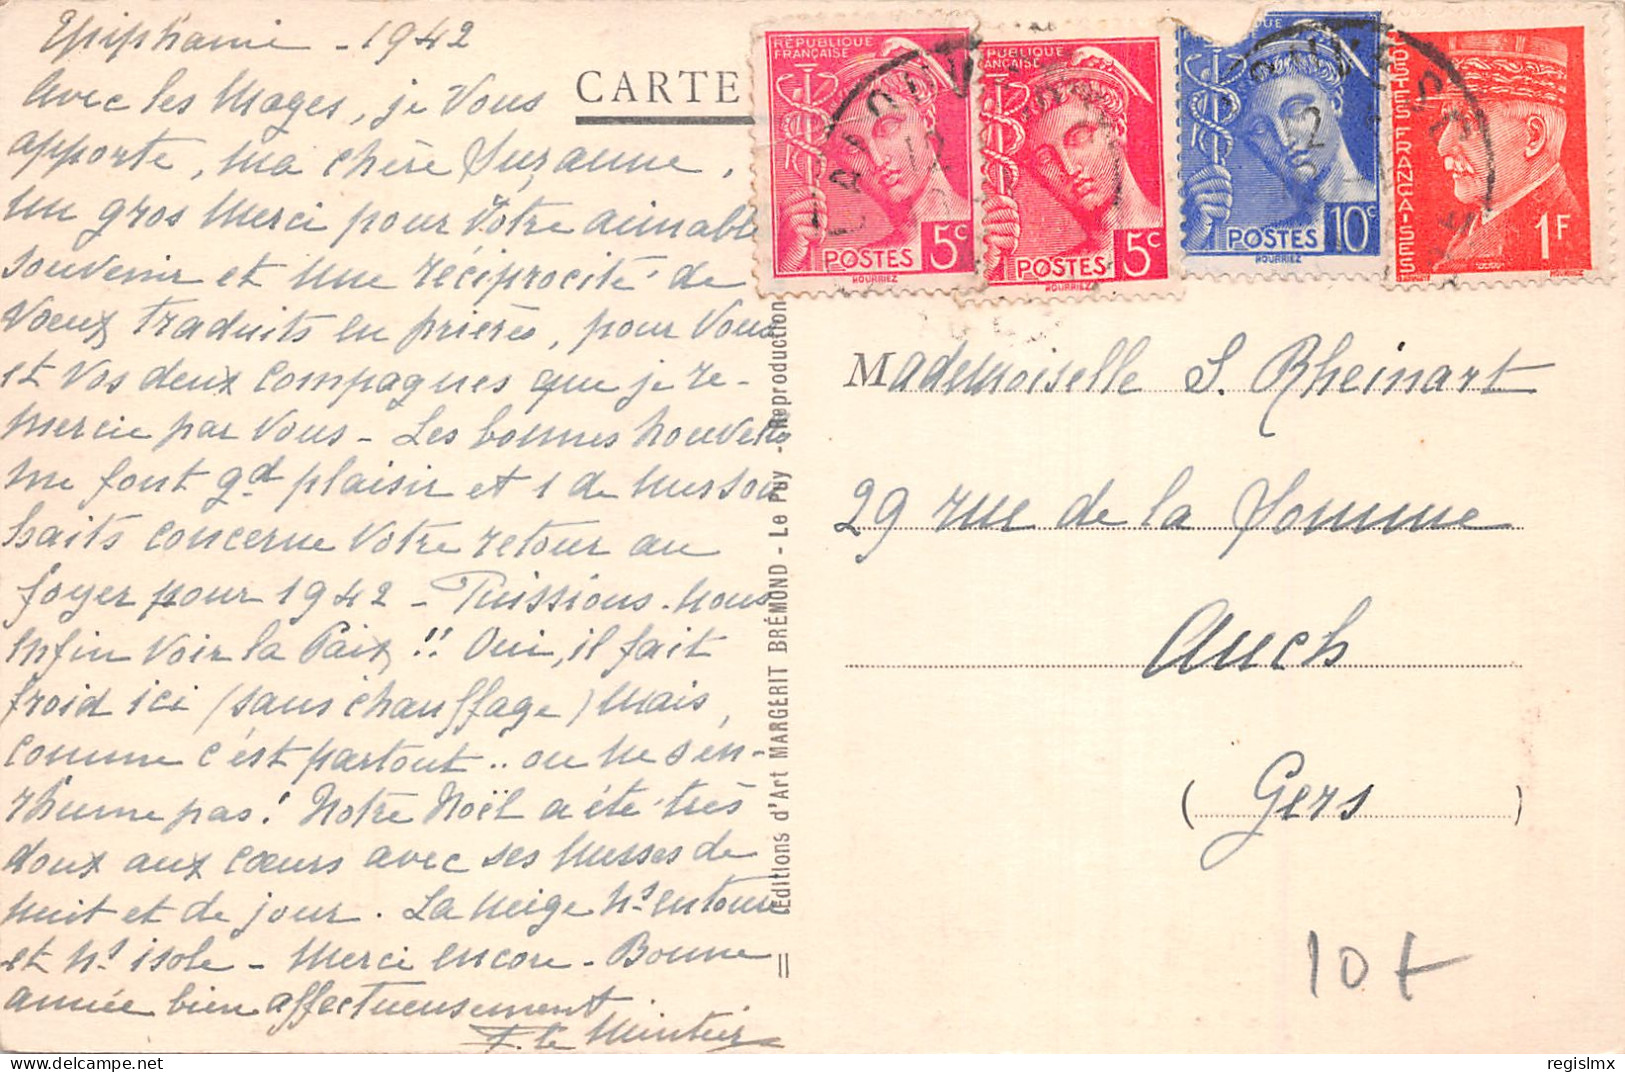 Epiphanie - 1942
Avec les Mages, je Vous
apporte, ma chère Suzanne,
un gros Merci pour Votre aimable
souvenir et une réciprocité de
Vœux traduits en prières, pour Vous
et Vos deux compagnes que je re-
mercie par Vous - Les bonnes nouvelles
me font gd plaisir et 1 de mes sou
haits concerne Votre retour au
foyer pour 1942 - Puissions-nous
enfin Voir la Paix !! Oui, il fait
froid ici (sans chauffage) Mais,
comme c'est partout .. on ne s'en-
rhume pas! Notre Noël a été très
doux aux cœurs avec ses Messes de
nuit et de jour. La neige ns entoure
et ns isole - Merci encore - Bonne
année bien affectueusement
CARTE
RÉPUBLIQUE
FRANÇAISE
POSTES 5c
ROURRIEZ
RÉPUBLIQUE
FRANÇAISE
POSTES 5c
HOURRIEZ
POSTES 10c
HOURRIEZ
POSTES FRANÇAISES
1F
Editions d'Art MARGERIT BRÉMOND - Le Puy - Reproduction
Mademoiselle S. Rheinart
29 rue de la Somme
Auch
(Gers)
10t
regislmx